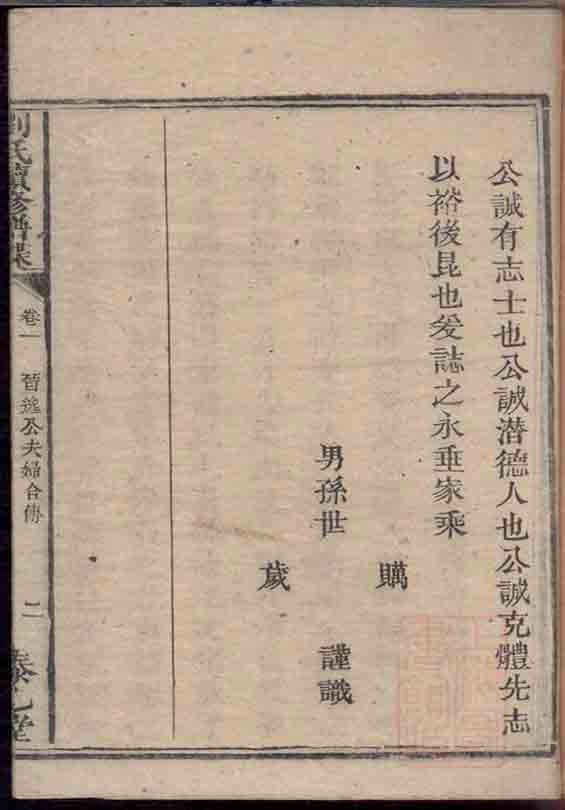 公誠有志士也公誠潜德人也公誠克體先志
以裕後昆也爰誌之永垂家乘
購
男孫世 謹識
葳
劉氏續修譜
卷一 晉逸公夫婦合傳 二